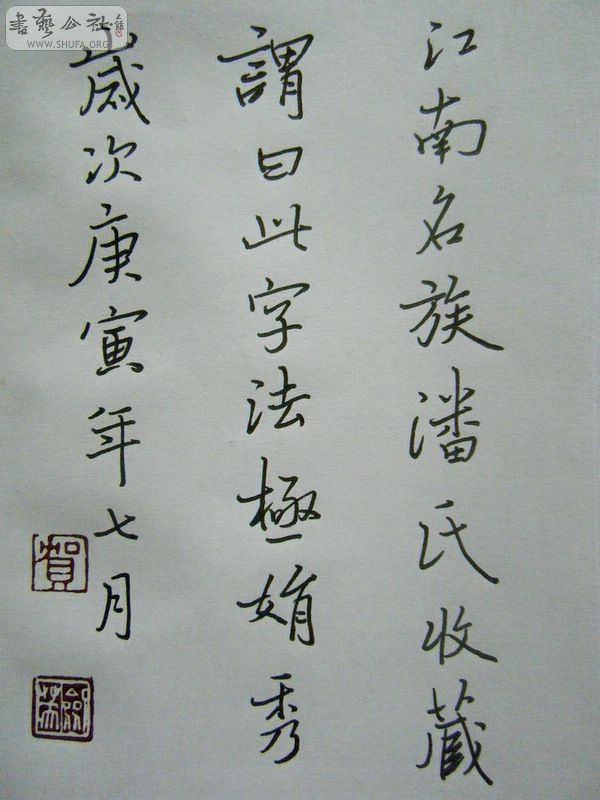 江南名族潘氏收蔵
謂曰此字法極娟秀
歲次庚寅年七月
賀
書藝公社
WWW.SHUFA.ORG